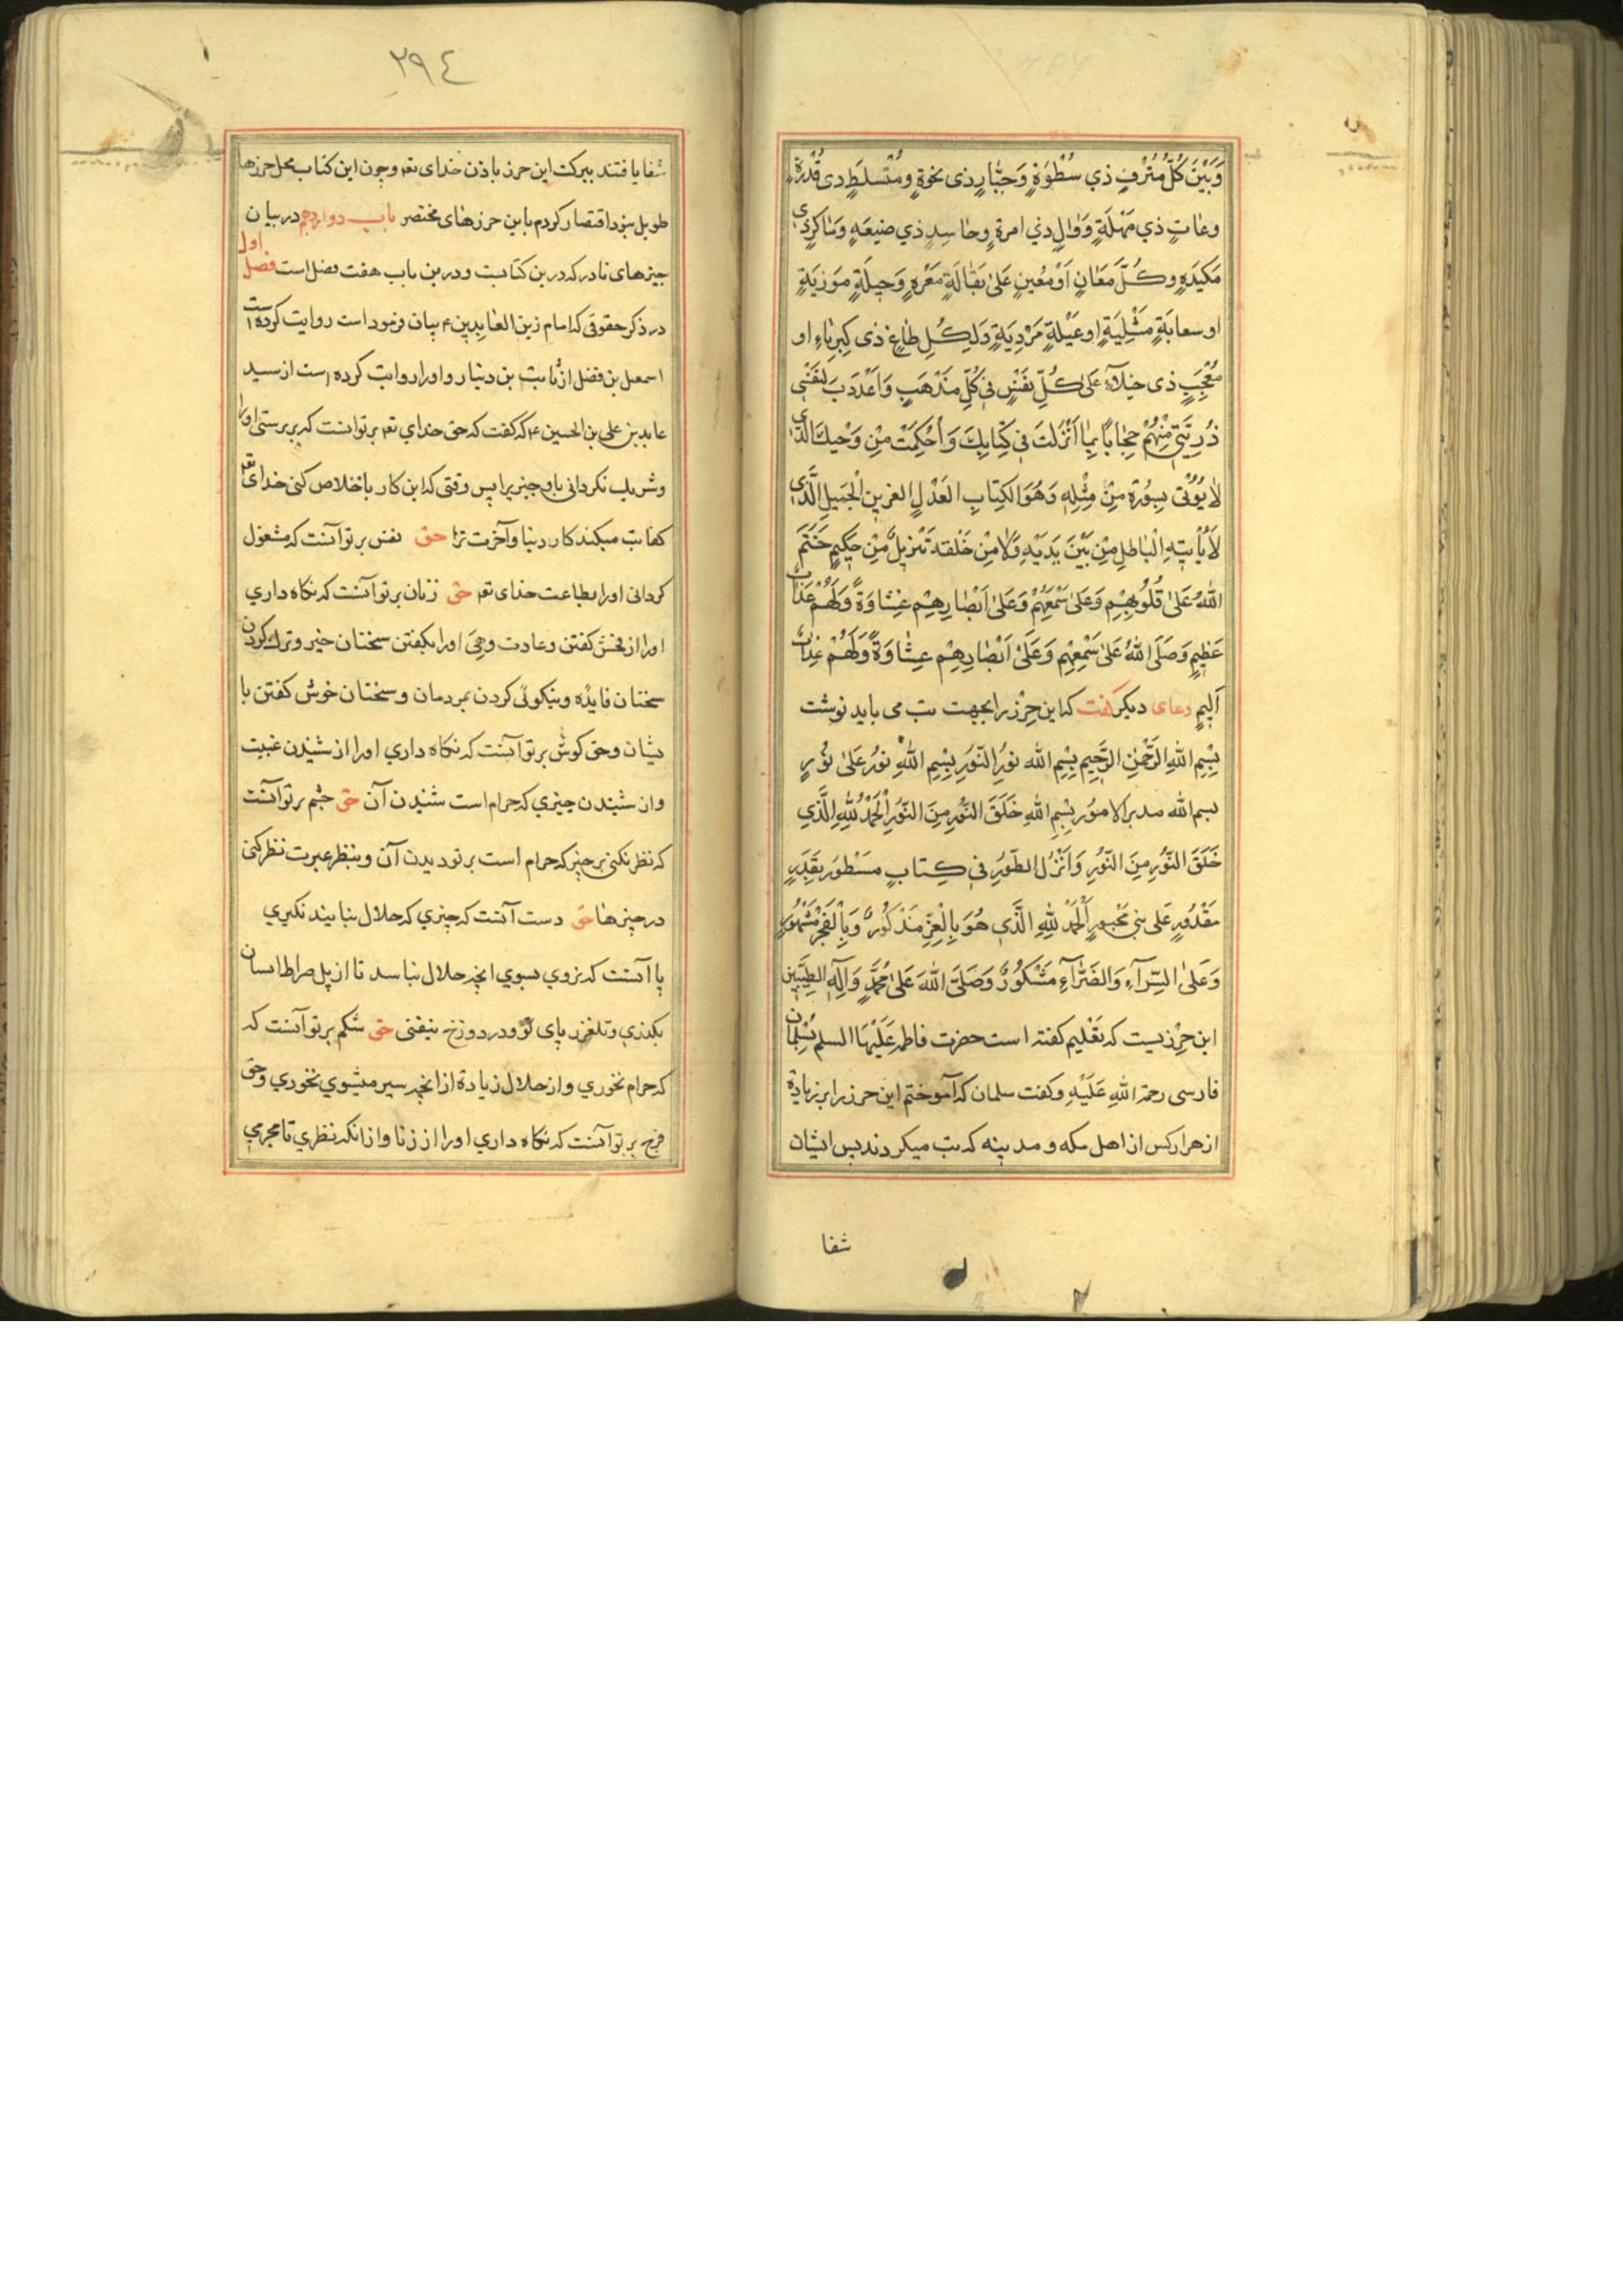 وَبَيْنَ كُلِّ مُتْرِفٍ ذي سُطْوَةٍ وَجَبّارٍ ذى نخوةٍ ومُتسلطٍ دى قُدْرَةٍ
وعاتٍ ذي مَهْلَةٍ وَوٰالٍ دني امرة وحاسِدٍ ذي صنيعَهٍ وَمٰاكرٍذي
مَكيدَهٍ وكُلَّ مَعَانٍ اَوْ مُعينٍ عَلىٰ بَقٰالَةٍ مَغْرِهٍ وَحيلَةٍ مَوزيَةٍ
او سعابَةٍ مَثْلِيَةٍ اوعَيْلةٍ مَرْدِيَةٍ وَلِكُلِ طٰاغٍ ذى كِبرِيٰاءٍ او
مُعْجِبٍ ذى خيلآءٍ عَلىٰ كُلِّ نفَسٍ فى كُلِّ مَذْهَبٍ وَاَعْدَدَتَ لنفَسْى
ذُرِيَّتى مِنْهُمْ حِجٰاباً بِمٰا اَنْزَلتَ فى كِتٰابِكَ وَاَحْكمَتْ مِنْ وَحْيكَ الَّذي
لٰا يُوُتى بِسِوُرةٍ مِنْ مِثْلِهِ وَهُوَ الكِتٰابِ العَدْلِ العزيزِ الْجَميلِ الَّذي
لٰا يأتيِهِ الْبٰاطلِ مِنْ بَيْنَ يَدَيْهِ وَلٰا مِنْ خَلْفه تَنزيلٌ مِنْ حَكيمٍ خَتَمَ
اللهُ عَلىٰ قُلُوبِهِمِ وَعَلىٰ سَمْعِهِمْ وَعَلىٰ اَبْصٰارِهِمِ غِشٰاوَةٌ وَلَهُمْ عَذٰابٌ
عَظيمٍ وَصَلَى اللهُ عَلىٰ سَمْعِهِمِ وَعَلىٰ اَبْصٰارِهِمِ غِشٰاوَةٌ وَلَهُمْ عَذٰابٌ
اَليمٍ دعاى ديكر كفت كه اين حِرْز را بجهت تب مى بايد نوشت
بِسِمِ اللهِ الرَحْمٰنِ الرَّحيمِ بِسِمِ الله نوُرِ النّوُرِ بِسِمِ اللهِ نوُرُ عَلىٰ نوُرٍ
بسم الله مدبر الامور بِسِمِ اللهِ خَلَقَ النّوُرِ مِنَ النّوُرِ اَلْحَمْدُ لِلّٰهِ الَّذي
خَلَقَ النّوُرِ مِنَ النّوُرِ وَاَنْزَلَ الطّورُ في كِتابٍ مَسْطوُر بقَدَرٍ
مَقْدُورٍ عَلى نبى مَحْبورٍ اَلْحَمْدُ لِلّٰهِ الَّذي هُوَ بِالْعِزِ مَذْكوُرٌ وَبِاْلفَخْرِ مَشْهوُرٌ
وَعَلىٰ السّرآءِ وَالضَرّآءِ مَشْكوُرٌ وَصَلَىَّ اللهَ عَلىٰ مُحَمَّدٍ وَآلِهِ الطيّبَين
اين حِرْزيست كه تَعْليم كفته است حضرت فاطمه عَلَيْهَا السلم بسُلمان
فارسى رحمة اللهِ عَلَيْهِ وكفت سلمان كه آموختم اين حرز را بر زيادة
از هزار كس از اهل مكه و مدينه كه تب ميكردند پس ايشان
شفا
٢٩٤
شفا يافتند ببركت اين حرز باذن خداى تعم وچون اين كتاب محل حرزها
طويل نبود اقتصار كردم باين حرزهاى مختصر باب دوازدهم دربيان
چيزهاى نادر كه درين كتابست ودرين باب هفت فصل است فصل اول
در ذكر حقوقى كه امام زين العابدين ع بيان فرمود است روايت كرده است
اسمعيل بن فضل از ثابت بن دينار و او را روايت كرده است از سيد
عابد بن على بن الحسين ع كه كفت كه حق خداي تعم بر تو آنست كه بپرستى او را
وشريك نكردانى باو چيزيرا پس وقتى كه اين كار باخلاص كنى خداى تعم
كفايت ميكند كار دنيا وآخرت ترا حق نفس بر تو آنست كه مشغول
كردانى او را بطاعت خداى تعم حق زبان بر تو آنست كه نكاه داري
او را از فحش كفتن وعادت دهى او را بكفتن سخنان خير وترك كردن
سخنان فايده ونيكوئى كردن بمردمان وسخنان خوش كفتن با
يشان وحق كوش بر تو آنست كه نكاه داري او را از شنيدن غيبت
واز شنيدن چيزي كه حرام است شنيدن آن حق چشم بر تو آنست
كه نظر نكنى بر چيز كه حرام است بر تو ديدن آن وبنظر عبرت نظر كنى
در چيزها حق دست آنست كه چيزي كه حلال نبايند نكيري
پا آنست كه نروي بسوي انچه حلال نباسد تا از پل صراط اسان
بكذري ونلغزد پاى تو ودر دوزخ نيفتى حق شكم بر تو آنست كه
كه حرام نخوري واز حلال زيادة از انچه سير ميشوي نخوري وحق
فرج بر تو آنست كه نكاه داري او را از زنا واز انكه نظري نا محرمي